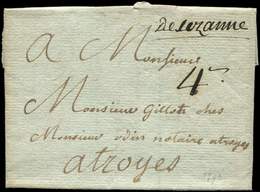 de sezanne
A Monsieur
4
Monsieur Gillot ches
Monsieur odin notaire atroyes
atroyes